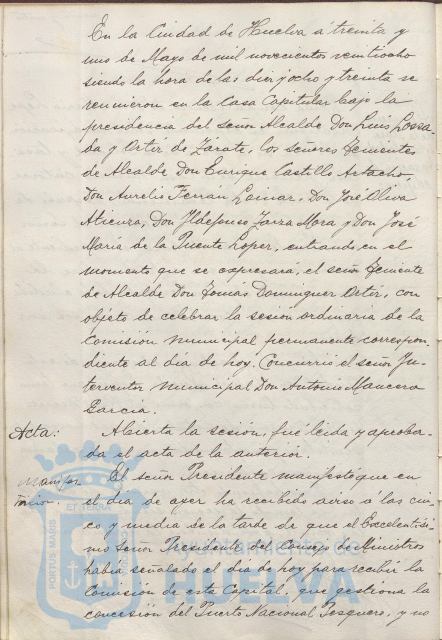 En la Ciudad de Huelva á treinta y
uno de Mayo de mil novecientos veintiocho
siendo la hora de las diez iocho y treinta se
reunieron en la Casa Capitular bajo la
presidencia del señor Alcalde Don Luis Lossa-
da y Ortiz de Zarate, los señores Tenientes
de Alcalde Don Enrique Castillo Artacho,
Don Aurelio Ferrán Loinaz, Don José Oliva
Atienza, Don Ildefonso Zarza Mora y Don José
María de la Puente Lopez, entrando en el
momento que se expresará, el señor Teniente
de Alcalde Don Tomás Dominguez Ortiz, con
objeto de celebrar la sesión ordinaria de la
Comisión Municipal permanente correspon-
diente al dia de hoy. Concurrió el señor In-
terventor Municipal Don Antonio Mancera
Garcia.
Acta: Abierta la sesión, fué leida y aproba-
da el acta de la anterior.
El señor Presidente manifestó que en
el dia de ayer ha recibido aviso a las cin-
co y media de la tarde de que el Excelentisi-
mo Señor Presidente del Consejo de Ministros
habia señalado el dia de hoy para recibir la
Comisión de esta Capital, que gestiona la
concesión del Puerto Nacional Pesquero, y no
PORTUS MARIS
ET TERRÆ
Ayuntamiento de
HUELVA